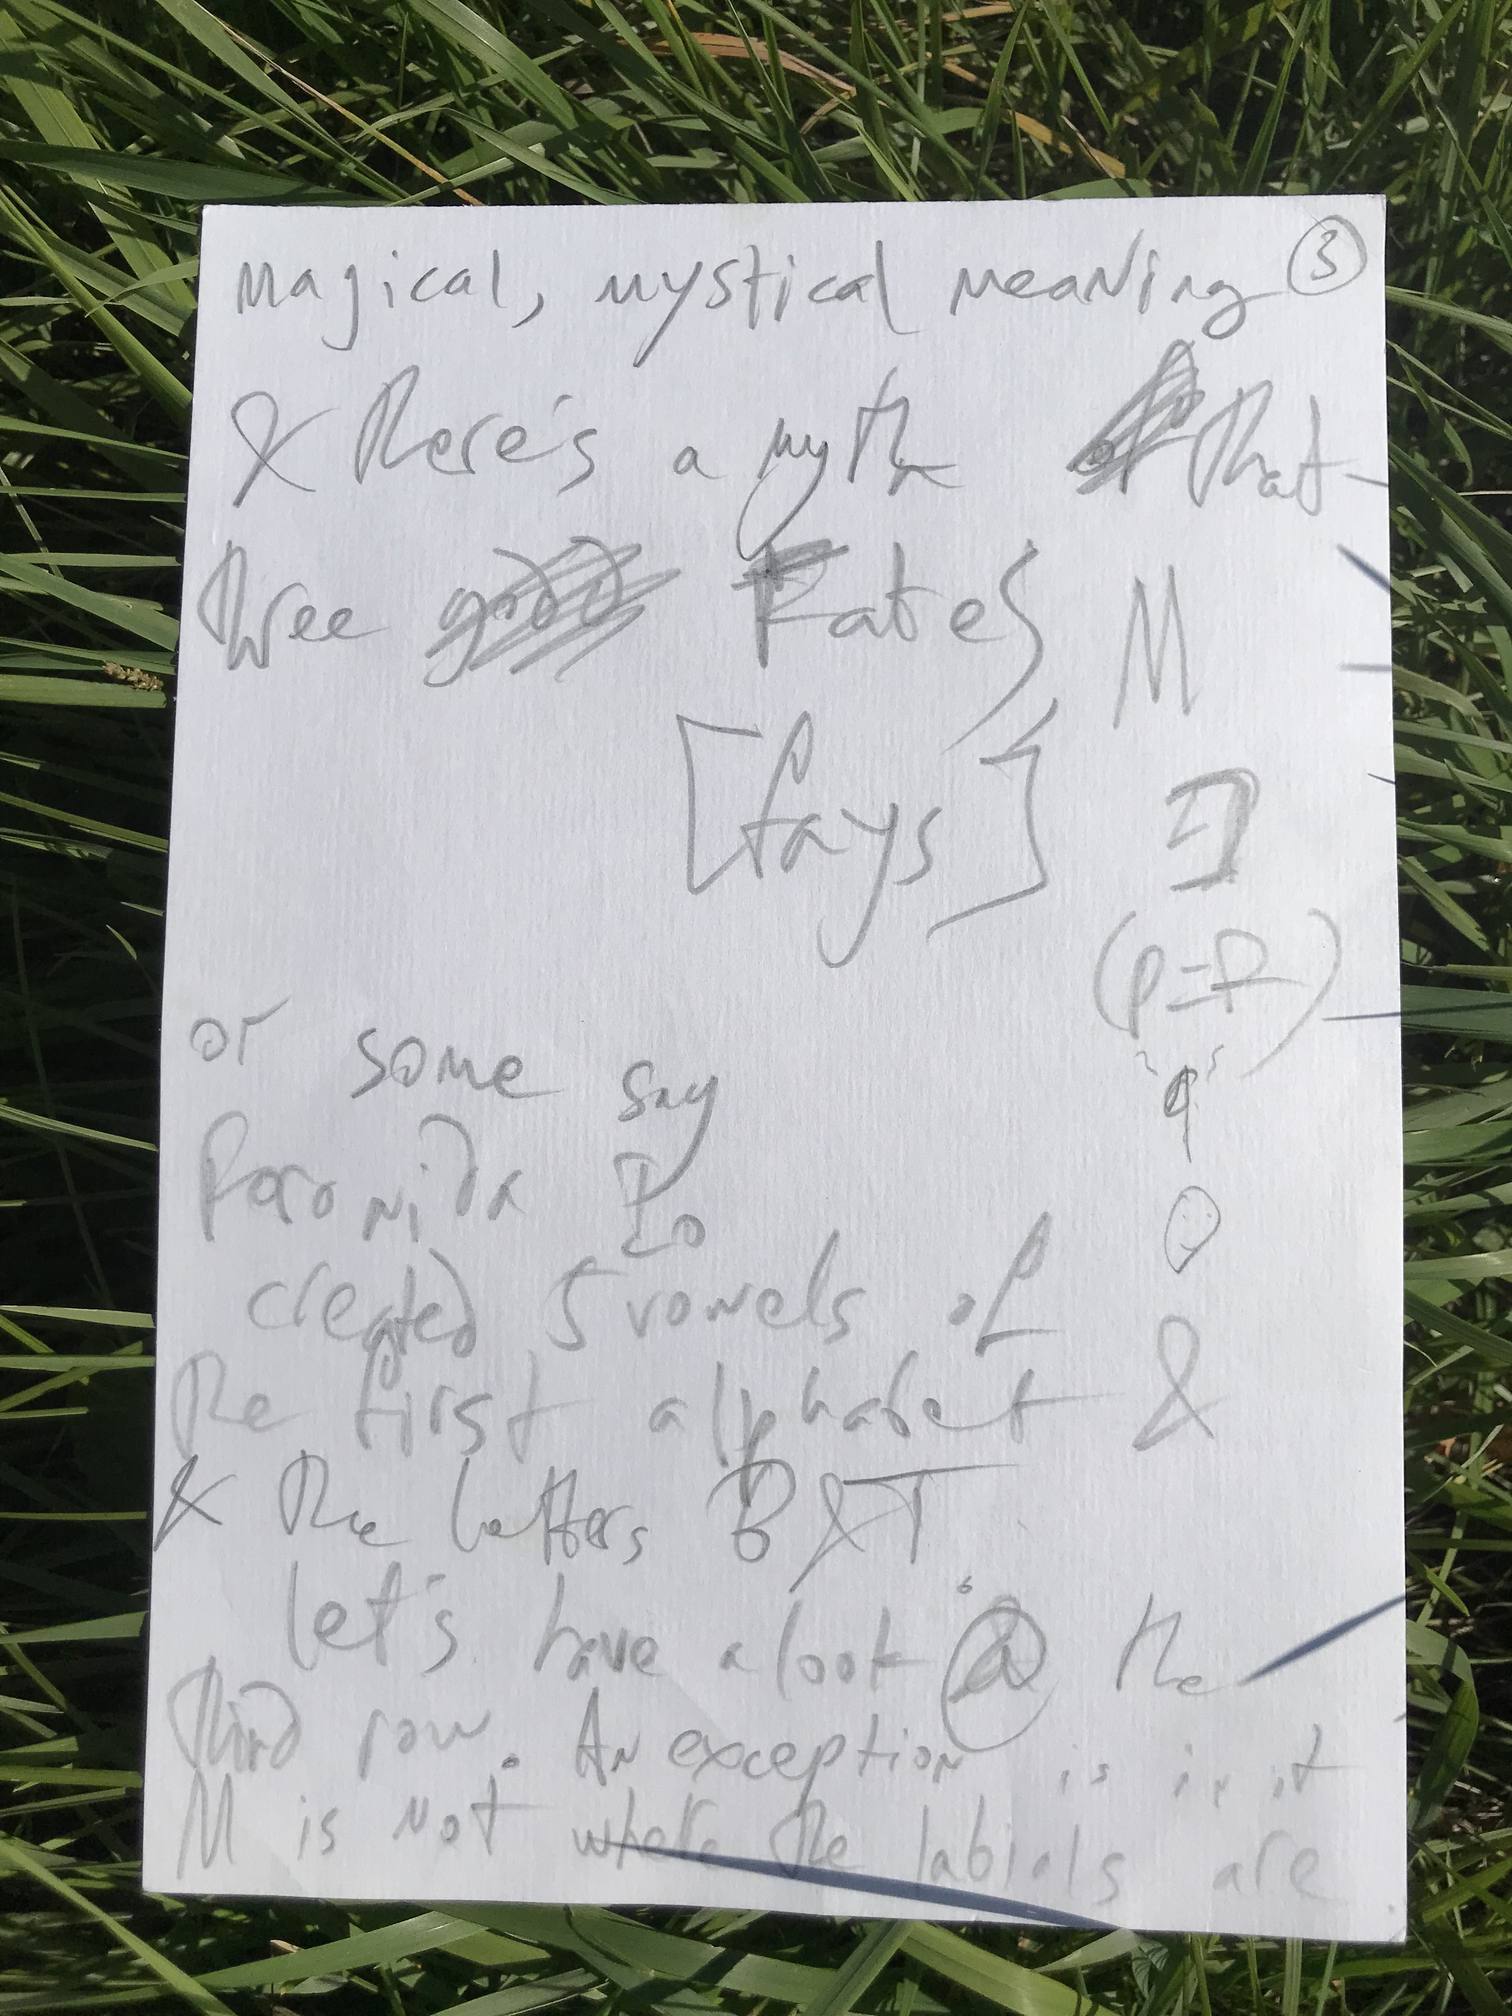 magical, mystical meaning ③
& there's a myth that
three Fates M
[fays]
(p=P)
q
or some say
Foronida Io
created 5 vowels of
the first alphabet &
& the letters B & T
let's have a look @ the
third row. An exception is in it
M is not where the labials are